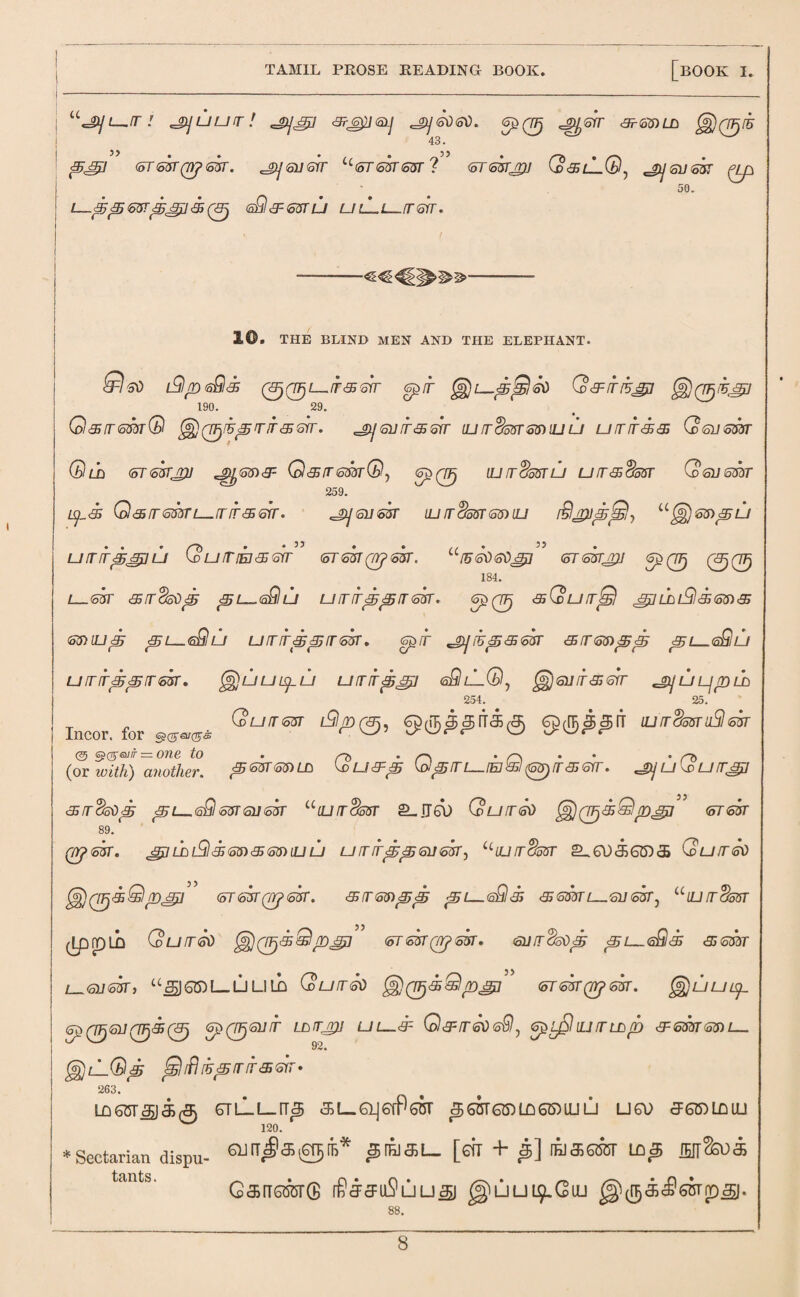 TAMIL PROSE READING BOOK. [BOOK I.
“அடா! அப்பா! அது சறுவு அல்ல. ஒரு ஆள் சமை இருந்
43.
தது” என்றான். அவள் “என்ன?” என்று கேட்டு, அவன் மூ
50.
டத்தனத்துக்கு விசனப் பட்டாள்.
10. THE BLIND MEN AND THE ELEPHANT.
சில பிறவிக் குருடர்கள் ஓர் இடத்தில் சேர்ந்து இருந்து
190. 29.
கொண்டு இருந்தார்கள். அவர்கள் யானையைப் பார்க்க வேண்
டும் என்று ஆசை கொண்டு, ஒரு யானைப் பாகனை வேண்
259.
டிக் கொண்டார்கள். அவன் யானையை நிறுத்தி, “இதைப்
பார்த்துப் போங்கள்” என்றான். “நல்லது” என்று ஒரு குரு
184.
டன் காலைத் தடவிப் பார்த்தான். ஒரு கபோதி துதும்பிக்கை
யைத் தடவிப் பார்த்தான். ஓர் அந்தகன் காதைத் தடவிப்
பார்த்தான். இப்படிப் பார்த்து விட்டு, இவர்கள் அப்புறம்
254. 25.
Incor. for ஒருவருக்
கு ஒருவர் = one to
(or with) another.
போன பிறகு, ஒருத்தருக்கு ஒருத்தர் யானையின்
தன்மை பேசத் தொடங்கினார்கள். அப்போது
காலைத் தடவினவன் “யானை உரல் போல் இருக்கிறது” என்
89.
றான். துதும்பிக்கையைப் பார்த்தவன், “யானை உலக்கை போல்
இருக்கிறது” என்றான். காதைத் தடவிக் கண்டவன், “யானை
முறம் போல் இருக்கிறது” என்றான். வாலைத் தடவிக் கண்
டவன், “துடைப்பம் போல் இருக்கிறது” என்றான். இப்படி
ஒருவருக்கு ஒருவர் மாறு படச் சொல்லி, ஒழியாமற் சண்டை
92.
இட்டுத் திரிந்தார்கள்.
263.
மனதுக்கு எட்டாத கடவுளின் தன்மையைப் பல சமய
120.
* Sectarian dispu-
tants.
வாதிகளுந்* தங்கட [ள் + த] ங்கண் மத நூலைக்
கொண்டு நிச்சயிப்பது இப்படியே இருக்கின்றது.
88.
8